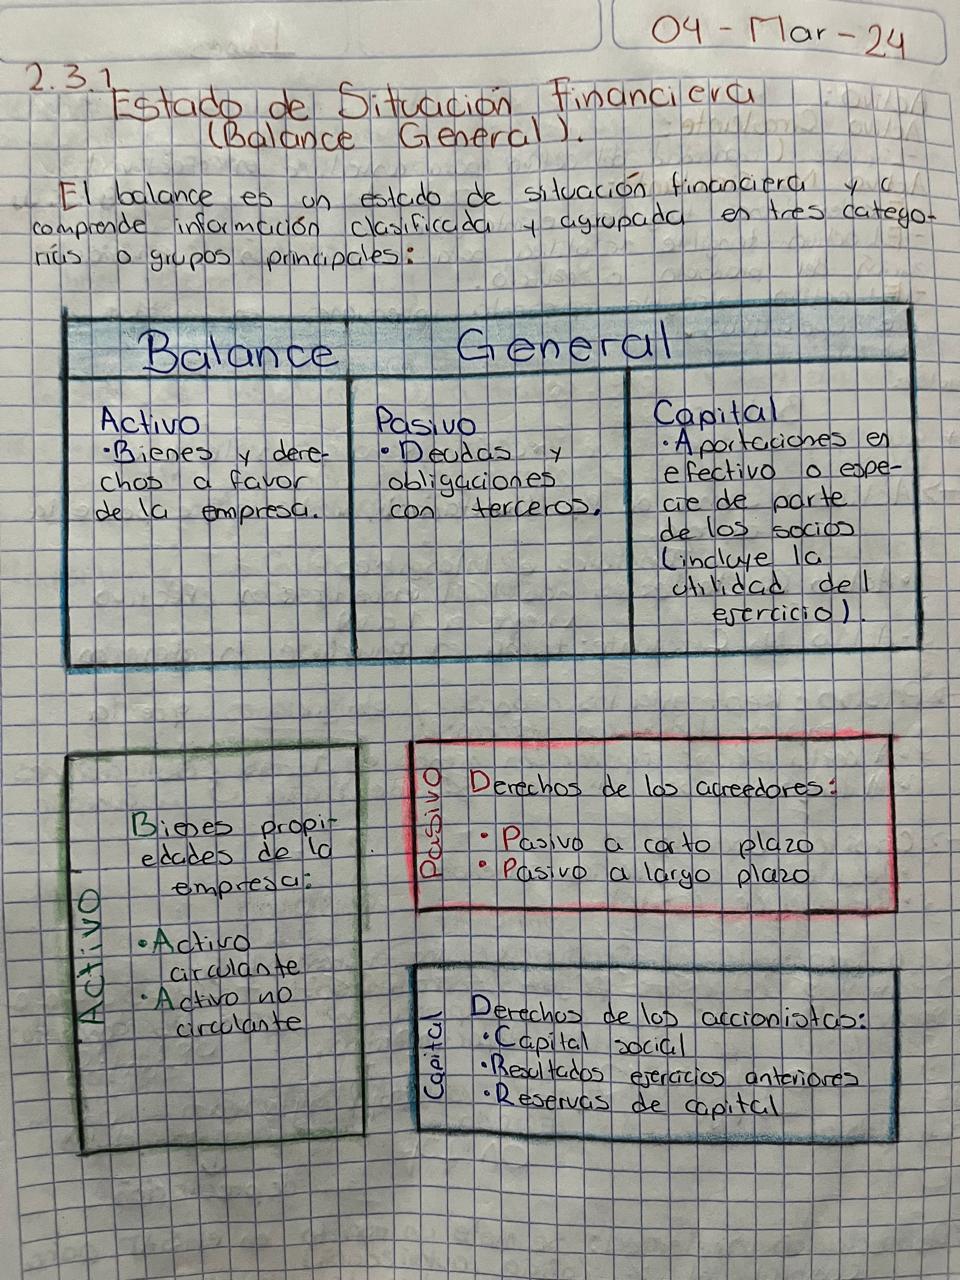 04 - Mar - 24
2.3.1
Estado de Situación Financiera
(Balance General).
El balance es un estado de situación financiera y c
comprende información clasificada y agrupada en tres catego-
rías o grupos principales:
Balance General
Activo
• Bienes y dere-
chos a favor
de la empresa.
Pasivo
• Deudas y
obligaciones
con terceros.
Capital
• Aportaciones en
efectivo o espe-
cie de parte
de los socios
(incluye la
utilidad del
esercicio).
Activo
Bienes propi-
edades de la
empresa:
• Activo
circulante
• Activo no
circulante
Pasivo
Derechos de los acreedores:
• Pasivo a corto plazo
• Pasivo a largo plazo
Capital
Derechos de los accionistas:
• Capital social
• Resultados ejercicios anteriores
• Reservas de capital